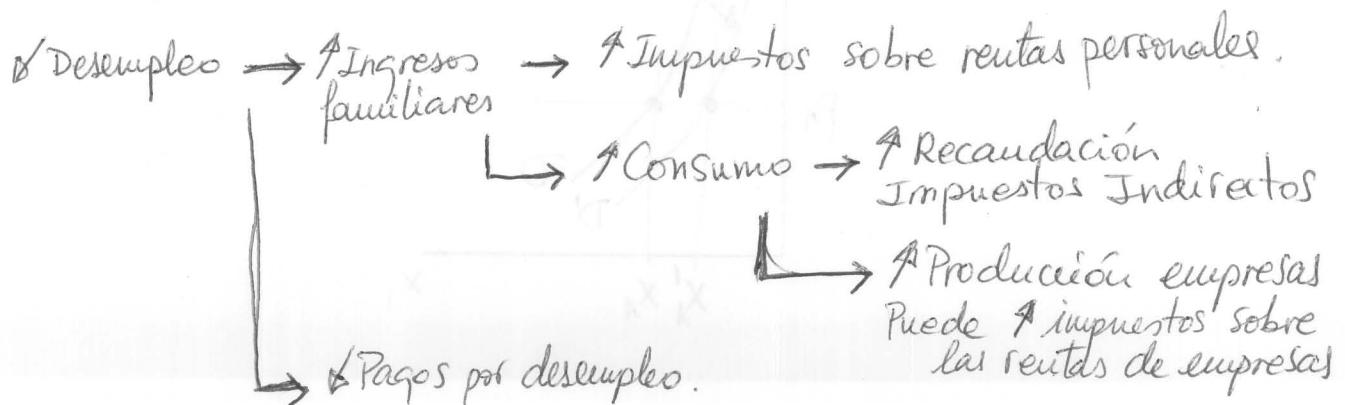 ↓ Desempleo → ↑ Ingresos → ↑ Impuestos sobre rentas personales.
familiares
↑ Consumo → ↑ Recaudación
Impuestos Indirectos
↑ Producción empresas
Puede ↑ impuestos sobre
las rentas de empresas
↓ Pagos por desempleo.